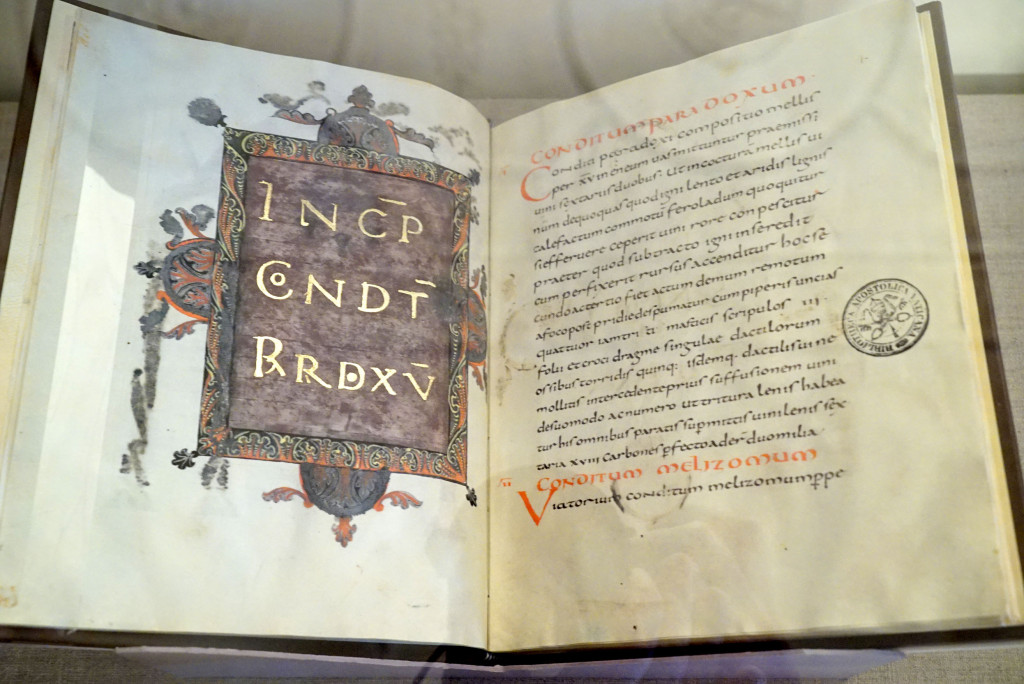 INCP
CONDT
BRRDXV
CONDITUM PARADOXUM
Conditi paradoxi compositio mellis
per XV in eneum vas mittuntur praemissi
vini sextarius duobus ut in coctura mellis vi
num dequoquas quod igni lento et aridis lignis
calefactum commotu ferula dum quoquitur
si effervere ceperit vini rore conpescitur
praeter quod subtracto igni in se redit
cum perfixerit rursus accenditur hoc se
cundo ac tertio fiet ac tum demum remotum
a foco post pridie despumatur cum piperis uncias
quattuor iam triti masticis scripulos III
folii et croci dragme singulae dactilorum
ossibus torridis quinq: isdemq: dactilis vi ne
mollitis intercedente prius suffusionem vini
de suo modo ac numero ut tritura lenis habea
tur his omnibus paratis supmittis vini lenis sex
taria XVIII carbones perfecto aderunt duo milia
CONDITUM MELIZOMUM
Viatorium conditum melizomum ppe
BIBLIOTECA APOSTOLICA VATICANA